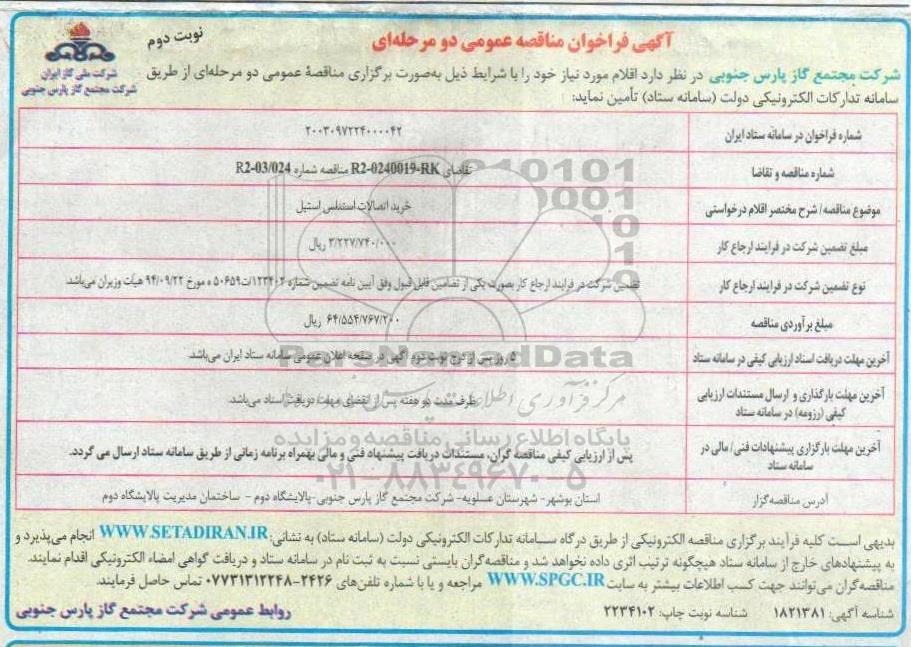 آگهی فراخوان مناقصه عمومی دو مرحله‌ای
نوبت دوم
شرکت ملی گاز ایران
شرکت مجتمع گاز پارس جنوبی
شرکت مجتمع گاز پارس جنوبی در نظر دارد اقلام مورد نیاز خود را با شرایط ذیل به‌صورت برگزاری مناقصهٔ عمومی دو مرحله‌ای از طریق
سامانه تدارکات الکترونیکی دولت (سامانه ستاد) تأمین نماید:
شماره فراخوان در سامانه ستاد ایران
۲۰۰۳۰۹۷۲۲۴۰۰۰۰۴۲
شماره مناقصه و تقاضا
تقاضای R2-0240019-RK مناقصه شماره R2-03/024
موضوع مناقصه/ شرح مختصر اقلام درخواستی
خرید اتصالات استنلس استیل
مبلغ تضمین شرکت در فرایند ارجاع کار
۳/۲۲۷/۷۴۰/۰۰۰ ریال
نوع تضمین شرکت در فرایند ارجاع کار
تضمین شرکت در فرایند ارجاع کار بصورت یکی از تضامین قابل قبول وفق آیین نامه تضمین شماره ۱۲۳۴۰۲/ت۵۰۶۵۹ ه مورخ ۹۴/۰۹/۲۲ هیات وزیران می‌باشد.
مبلغ برآوردی مناقصه
۶۴/۵۵۴/۷۶۷/۲۰۰ ریال
آخرین مهلت دریافت اسناد ارزیابی کیفی در سامانه ستاد
۵ روز پس از درج نوبت دوم آگهی در صفحه اعلان عمومی سامانه ستاد ایران می‌باشد.
آخرین مهلت بارگذاری و ارسال مستندات ارزیابی
کیفی (رزومه) در سامانه ستاد
ظرف مدت دو هفته پس از انقضای مهلت دریافت اسناد می‌باشد.
آخرین مهلت بارگزاری پیشنهادات فنی/ مالی در
سامانه ستاد
پس از ارزیابی کیفی مناقصه گران، مستندات دریافت پیشنهاد فنی و مالی بهمراه برنامه زمانی از طریق سامانه ستاد ارسال می گردد.
آدرس مناقصه‌گزار
استان بوشهر- شهرستان عسلویه- شرکت مجتمع گاز پارس جنوبی-پالایشگاه دوم - ساختمان مدیریت پالایشگاه دوم
ParsNamadData
مرکز فرآوری اطلاعات پارس
پایگاه اطلاع رسانی مناقصه و مزایده
۰۲۱-۸۸۳۴۹۶۷۰-۵
بدیهی است کلیه فرآیند برگزاری مناقصه الکترونیکی از طریق درگاه سامانه تدارکات الکترونیکی دولت (سامانه ستاد) به نشانی: WWW.SETADIRAN.IR انجام می‌پذیرد و
به پیشنهادهای خارج از سامانه ستاد هیچگونه ترتیب اثری داده نخواهد شد و مناقصه‌گران بایستی نسبت به ثبت نام در سامانه ستاد و دریافت گواهی امضاء الکترونیکی اقدام نمایند.
مناقصه‌گران می‌توانند جهت کسب اطلاعات بیشتر به سایت WWW.SPGC.IR مراجعه و یا با شماره تلفن‌های ۲۴۲۶-۰۷۷۳۱۳۱۲۲۴۸ تماس حاصل فرمایند.
شناسه آگهی: ۱۸۲۱۳۸۱ شناسه نوبت چاپ: ۲۲۳۴۱۰۲
روابط عمومی شرکت مجتمع گاز پارس جنوبی